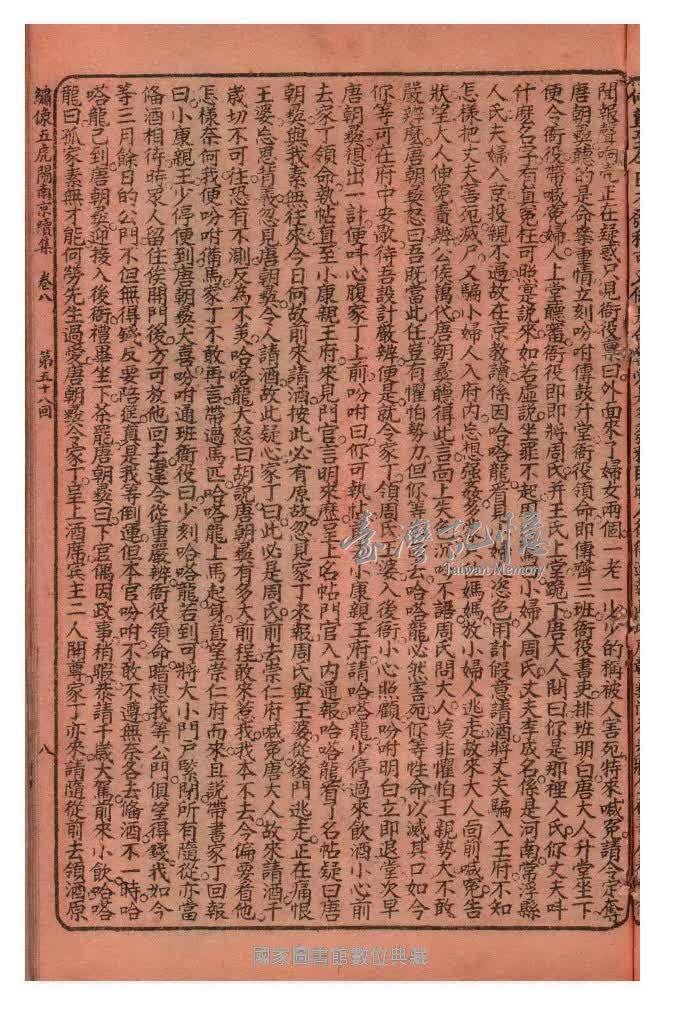 聞報聲响亮正在疑惑只見衙役禀曰外面來了婦女兩個一老一少少的稱被人害死特來喊冤請令定奪
唐朝彛聽的是命案重情立刻吩咐傳鼓升堂衙役領命即傳齊三班衙役書吏排班明白唐大人升堂坐下
便令衙役帶喊冤婦人上堂聽審衙役即即將周氏并王氏上堂跪下唐大人問曰你是那裡人氏你丈夫呌
什麽名子有直冤枉可照實說來如若虛說坐罪不起周氏小婦人周氏丈夫李成名係是河南常浮縣
人氏夫婦入京投親不過故在京教讀係因哈喀龍看見小婦姿色用計假意請酒將丈夫騙入王府不知
怎樣把丈夫害死滅尸又騙小婦人入府内忘想强姦多媽媽放小婦人逃走故來大人面前喊冤告
狀望大人伸冤責辨公侯萬代唐朝彛聽得此言面上失色沉吟不語周氏問大人莫非懼怕王親勢大不敢
嚴辨麽唐朝彛怒曰吾既當此任豈有懼怕勢力但你等去哈喀龍必然害死你等性命以滅其口如今
你等可在府中安歇待吾設計嚴辨便是就令家丁領周氏王婆入後衙小心照顧吩咐明白立即退堂次早
唐朝彛想出一計便呌心腹家丁上前吩咐曰你可執帖小康親王府請哈喀龍少停過來飲酒小心前
去家丁領命執帖直至小康親王府來見門官言明來歷呈上名帖門官入内通報哈喀龍看了名帖疑曰唐
朝彛與我素無往來今日何故前來請酒按此必有原故忽見家丁來報周氏與王婆從後門逃走正在痛恨
王婆忘恩背義忽見唐朝彛令人請酒故此疑心家丁曰此必是周氏前去崇仁府喊冤唐大人故來請酒千
歲切不可往恐有不測反為不美哈喀龍大怒曰胡說唐朝彛有多大前程敢來惹我我本不去今偏要看他
怎樣奈何我便吩咐備馬家丁不敢再言帶過馬匹哈喀龍上馬起身直望崇仁府而來且說帶書家丁回報
曰小康親王少停便到唐朝彛大喜吩咐通班衙役曰少刻哈喀龍若到可將大小門戶緊閉所有隨從亦當
偹酒相待時衆人留住俟開門後方可放他回去違令從重嚴辨衙役領命暗想我等公門俱望得錢我如今
等三月餘日的公門不但無得錢反要陪從真真我等倒運但本官吩咐不敢不遵無奈各去偹酒不一時哈
喀龍己到唐朝彛迎接入後衙禮畢坐下茶罷唐朝彛曰下官偶因政事稍暇恭請千歲大駕前來小飲哈喀
龍曰孤家素無才能何勞先生過愛唐朝彛令家丁呈上酒席賓主二人開尊家丁亦來請隨從前去領酒原
繡像五虎鬧南京續集 卷八 第五十八回 八
臺灣記憶
Taiwan Memory
國家圖書館數位典藏